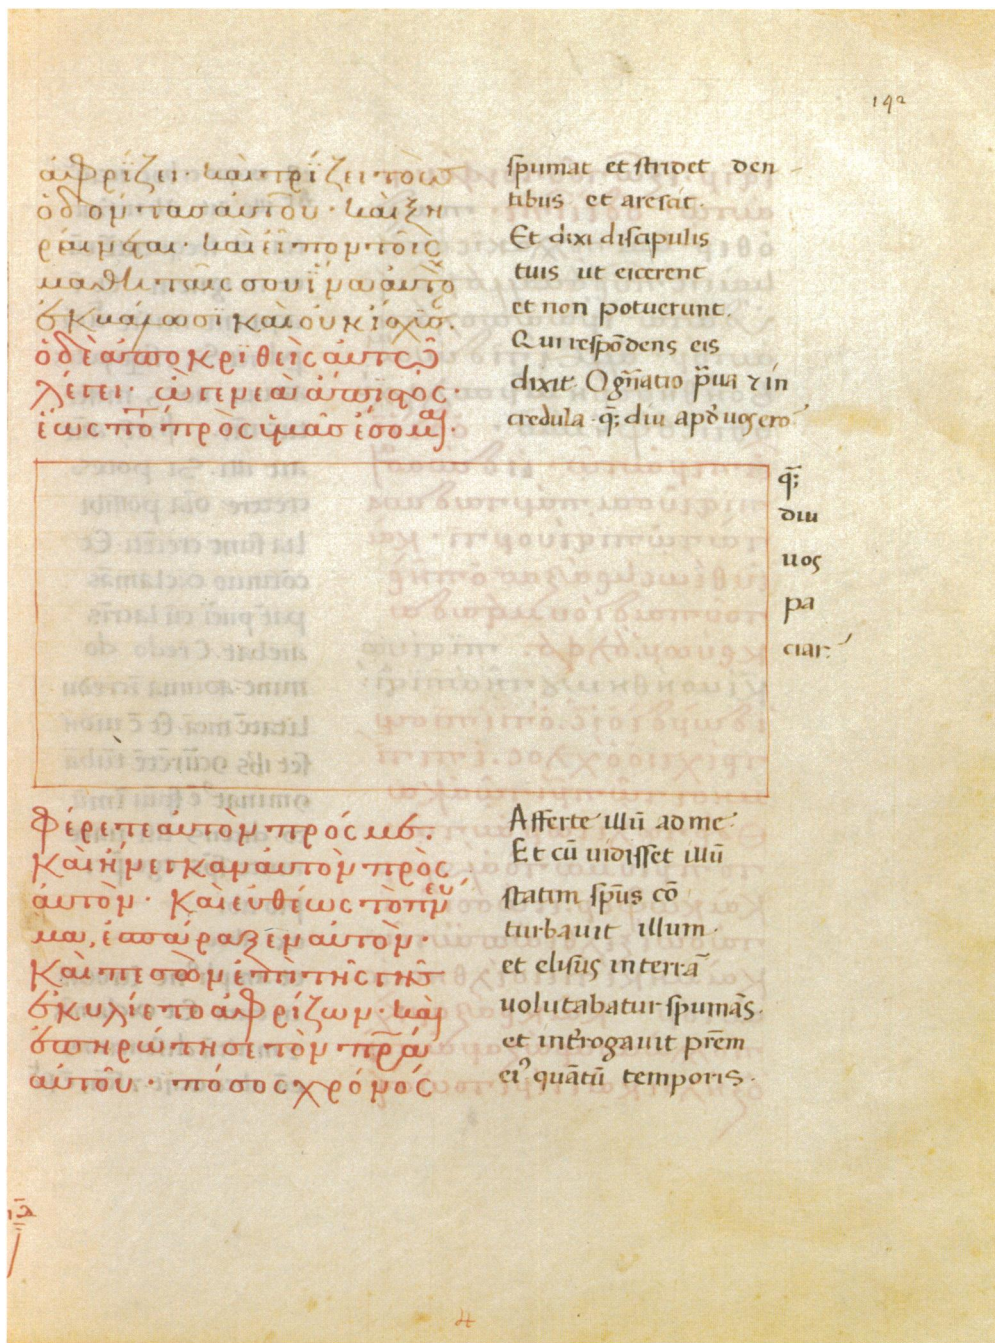 192
ἀφρίζει· καὶ τρίζει τοὺσ
ὀδόντασ αὐτοῦ· καὶ ξη
ραίνεται· καὶ εἶπον τοῖς
μαθηταῖς σου ἵνα αὐτὸ
ἐκβάλωσϊ καὶ οὐκ ἴσχυσ.
ὁ δὲ ἀποκριθεὶς αὐτῶ
λέγει· ὦ γενεὰ ἄπιστος·
ἕως πότε πρὸς ὑμᾶσ ἔσομαι·
φέρετε αὐτὸν πρός με.
καὶ ἤνεγκαν αὐτὸν πρὸς
αὐτόν· Καὶ εὐθέως τὸ πνεῦ
μα, ἐσπάραξεν αὐτὸν·
καὶ πεσὼν ἐπὶ τῆς γῆσ
ἐκυλίετο ἀφρίζων· καὶ
ἐπηρώτησε τὸν πρ̅α
αὐτοῦ· πόσος χρόνός
spumat et stridet den
tibus et arescit.
Et dixi discipulis
tuis ut eicerent
et non potuerunt.
Qui respōdens eis
dixit O gn̄atio p̄ua ⁊ in
credula q̄; diu apd̄ vos ero
q̄;
diu
uos
pa
ciar.
Afferte illū ad me
Et cū vidisset illū
statim sp̄us cō
turbavit illum.
et elisus in terrā
volutabatur spumās.
et int̄rogavit pr̄em
eiꝰ quātū temporis.